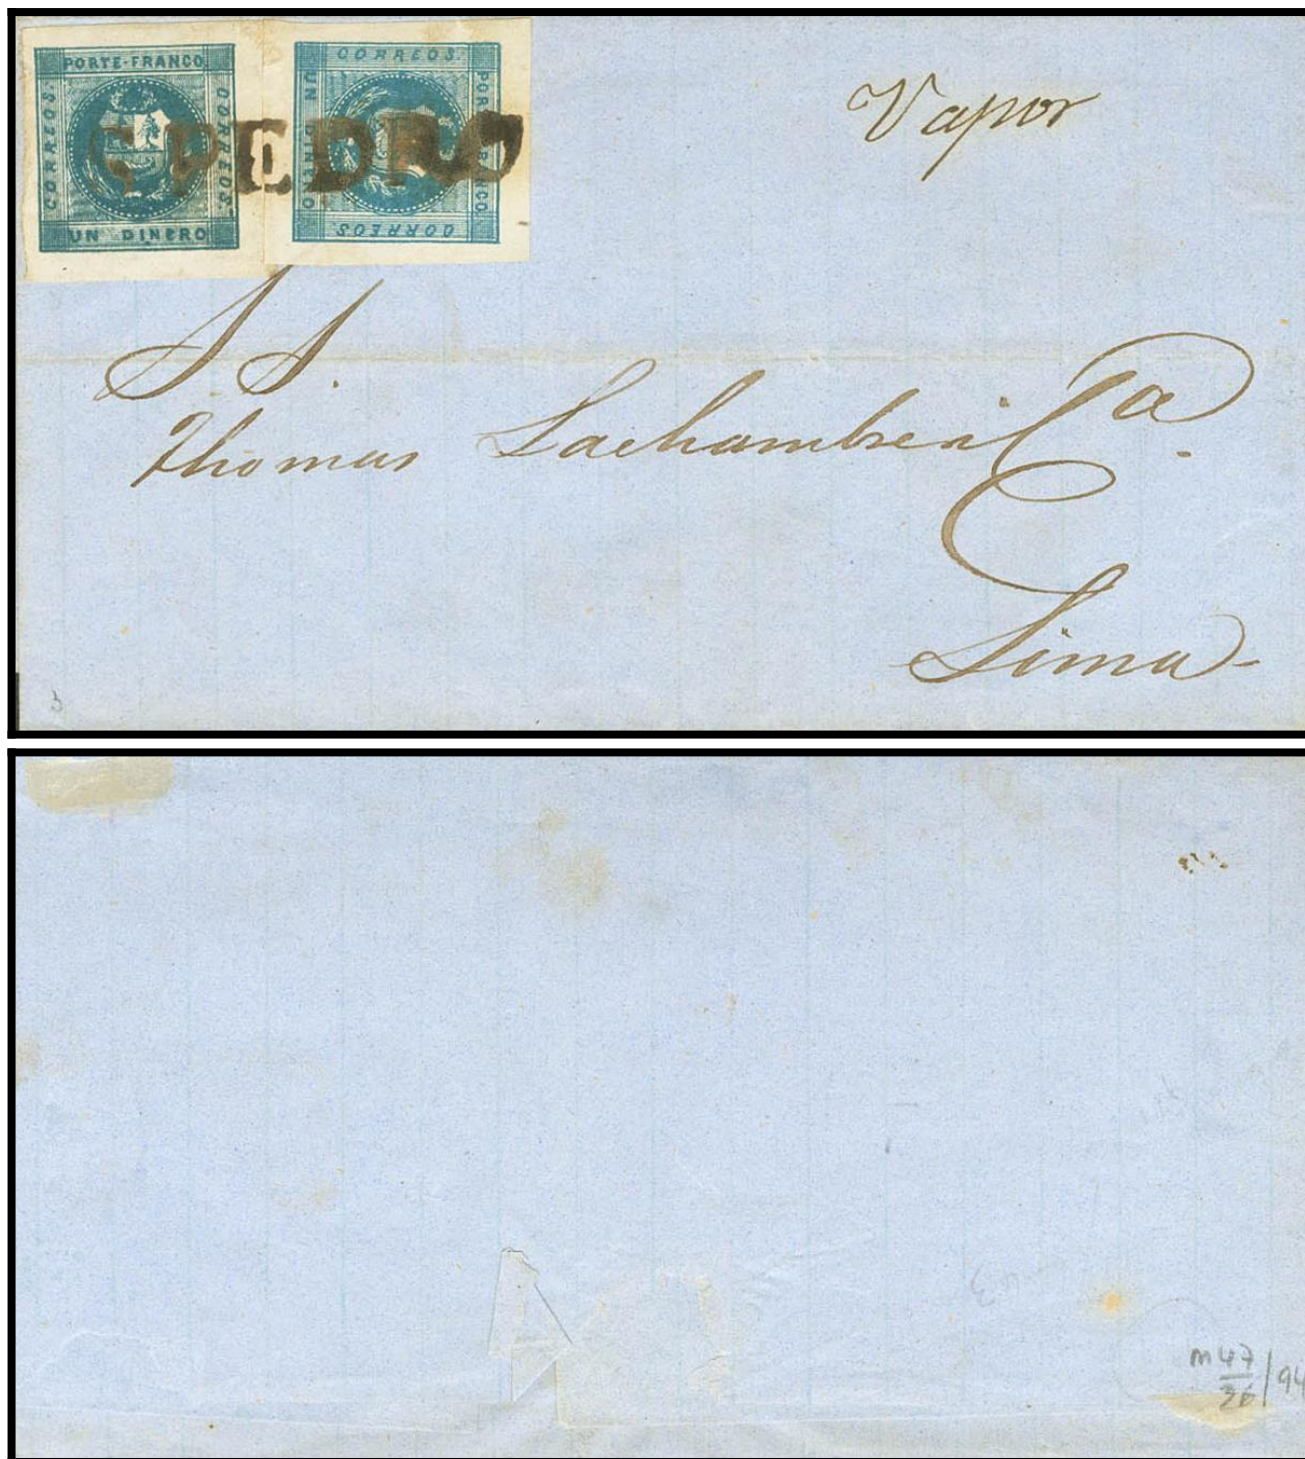 PORTE-FRANCO
CORREOS.
CORREOS.
UN DINERO
CORREOS.
PORTE FRANCO
UN DINERO
CORREOS
S PEDRO
Vapor
S. S.
Thomas Lachambre i Ca.
Lima
3
M 47
36 / 94